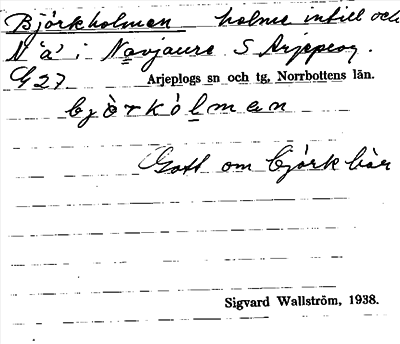 Björkholmen holme intill och
N "a" i Navjaure S Arjeplog.
G27. Arjeplogs sn och tg, Norrbottens län.
björkólman
Gott om björk här
Sigvard Wallström, 1938.